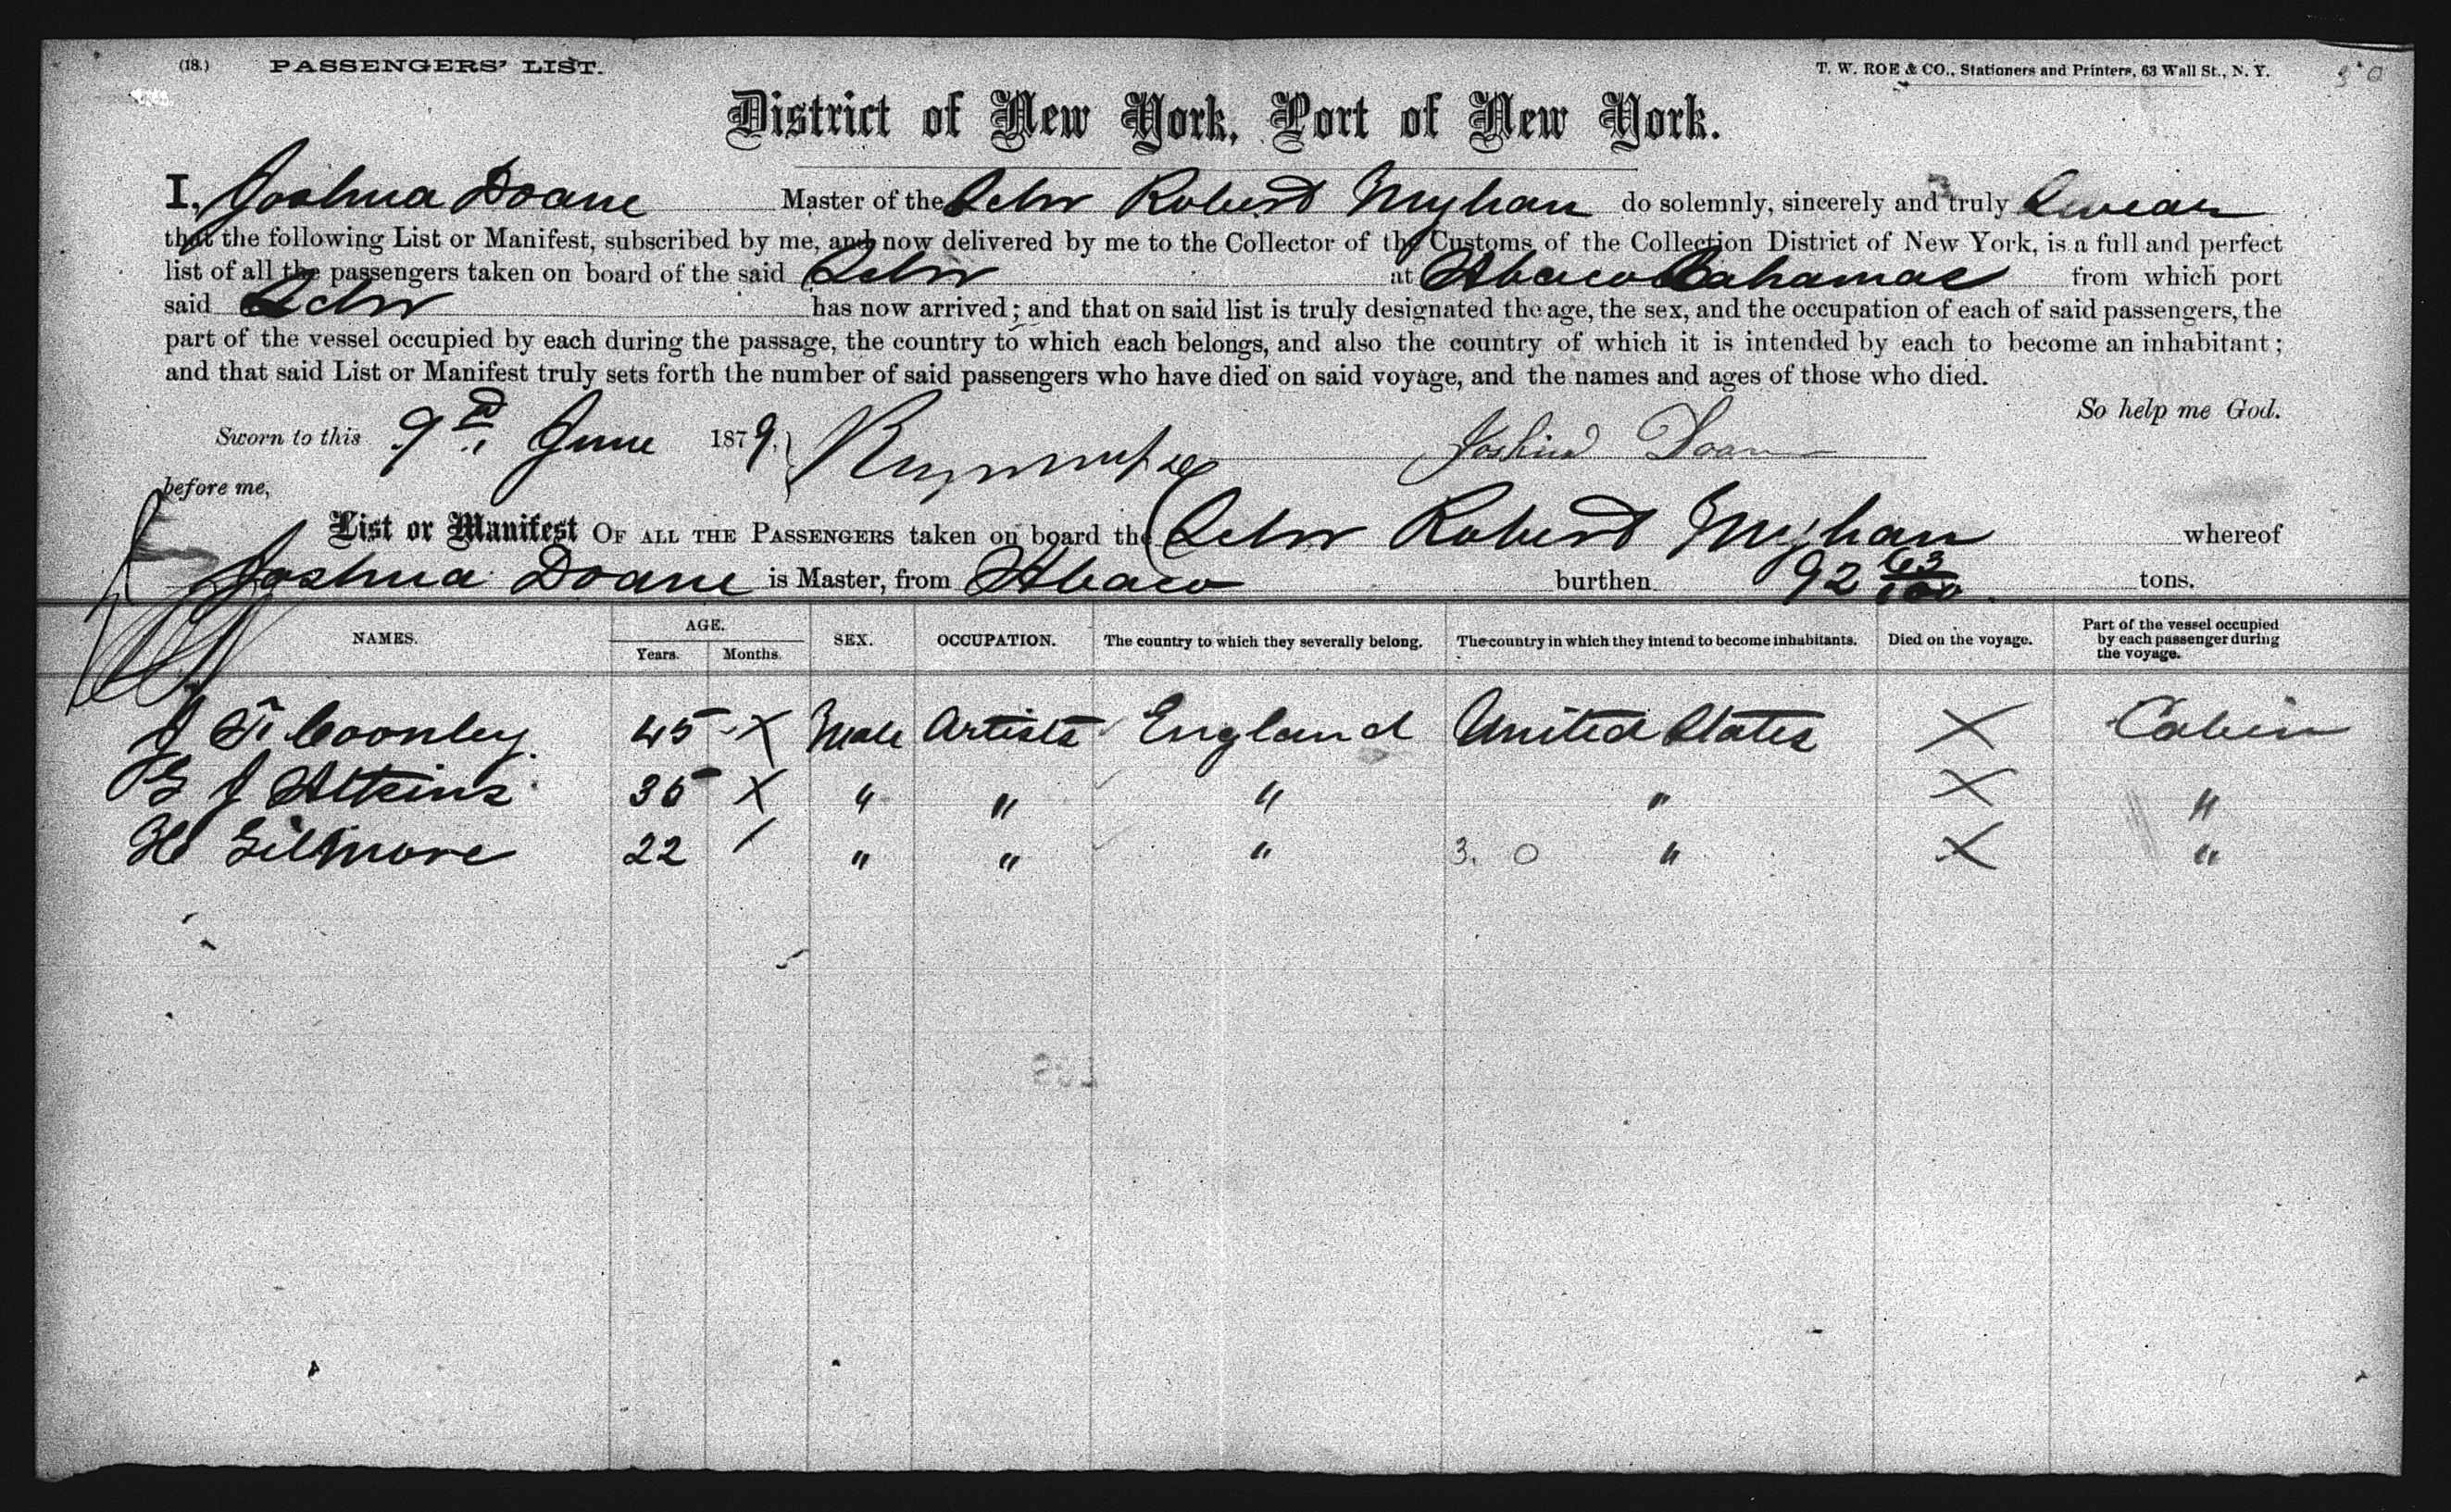 (18.) PASSENGERS' LIST. T. W. ROE & CO., Stationers and Printers, 63 Wall St., N. Y. 3 0
District of New York, Port of New York.
I, Joshua Doane Master of the Schr Robert Myhan do solemnly, sincerely and truly Swear
that the following List or Manifest, subscribed by me, and now delivered by me to the Collector of the Customs of the Collection District of New York, is a full and perfect
list of all the passengers taken on board of the said Schr at Abaco Bahamas from which port
said Schr has now arrived; and that on said list is truly designated the age, the sex, and the occupation of each of said passengers, the
part of the vessel occupied by each during the passage, the country to which each belongs, and also the country of which it is intended by each to become an inhabitant;
and that said List or Manifest truly sets forth the number of said passengers who have died on said voyage, and the names and ages of those who died.
So help me God.
Sworn to this 9th June 1879. Joshua Doane
before me,
List or Manifest OF ALL THE PASSENGERS taken on board the Schr Robert Myhan whereof
Joshua Doane is Master, from Abaco burthen 92 63/100 tons.
NAMES. AGE. Years. Months. SEX. OCCUPATION. The country to which they severally belong. The country in which they intend to become inhabitants. Died on the voyage. Part of the vessel occupied by each passenger during the voyage.
J F Coonley 45 X Male Artists England United States X Cabin
G J Atkins 35 X " " " " X "
H Gillmore 22 / " " " 3. 0 " X "